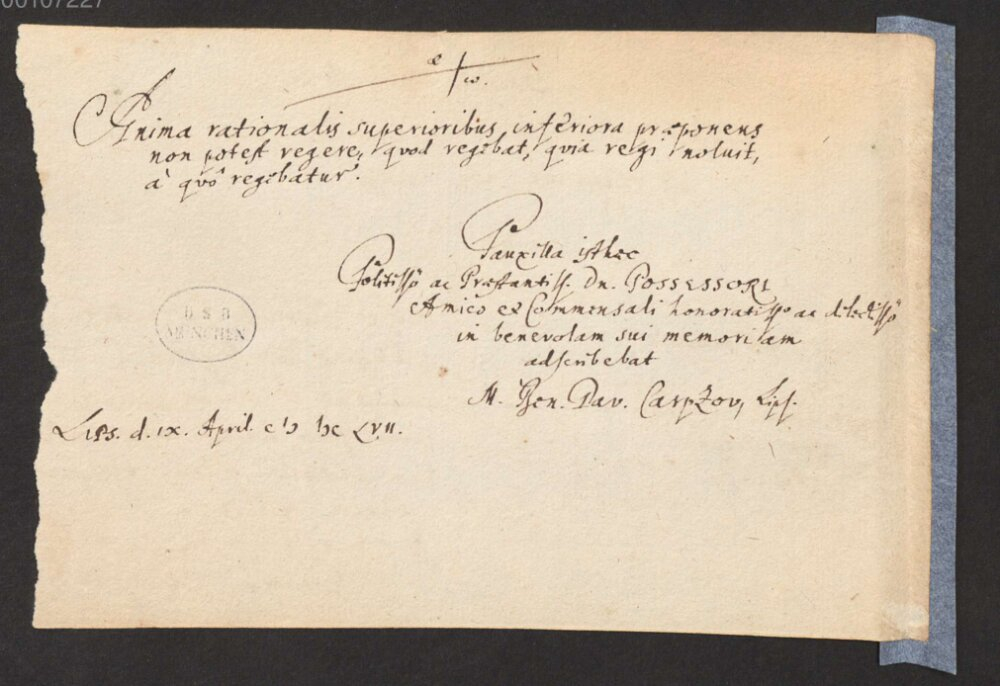 00107227
α ω.
Anima rationalis superioribus inferiora præponens
non potest regere, quod regebat, quia regi noluit,
à quô regebatur.
Pauxilla isthęc
Politissô ac Præstantiss. Dn. POSSESSORI
Amico et Commensali honoratisso ac dilectissô
in benevolam sui memoriam
adscribebat
M. Ben. Dav. Carpzov, Lips.
BSB
MÜNCHEN
Lips. d. ix. April. cIↃ IↃc LVII.